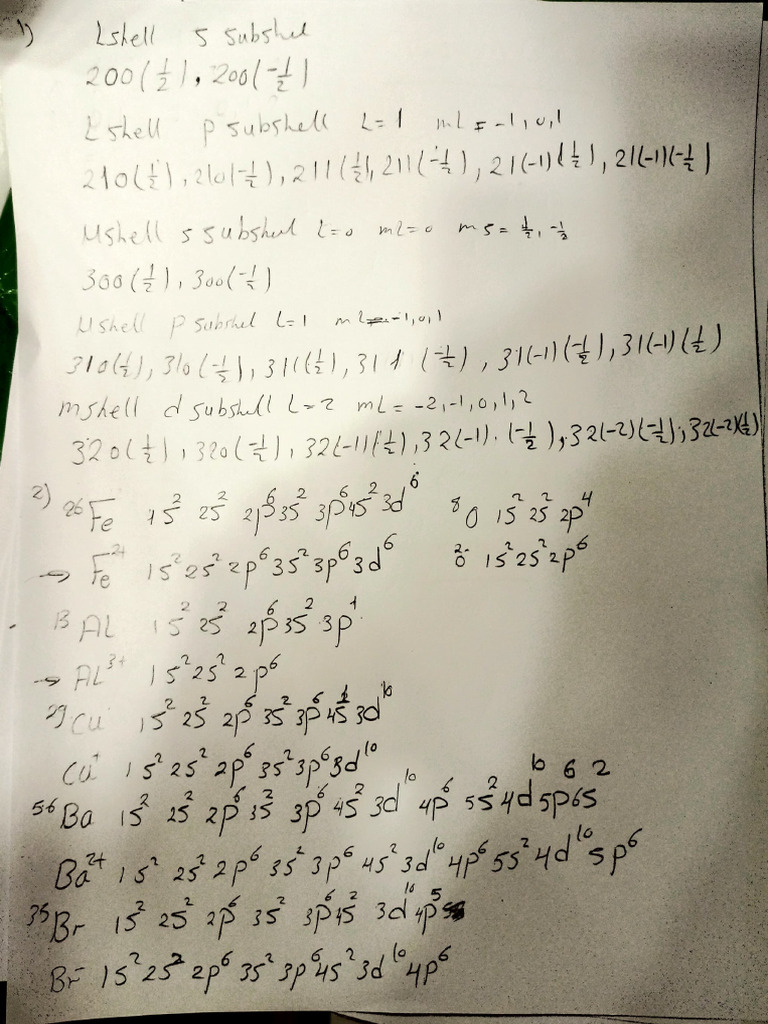 1) L shell s subshel
200(1/2), 200(-1/2)
L shell p subshell L=1 mL = -1,0,1
210(1/2), 210(-1/2), 211(1/2), 211(-1/2), 21(-1)(1/2), 21(-1)(-1/2)
M shell s subshel L=0 mL=0 ms = 1/2, -1/2
300(1/2), 300(-1/2)
M shell p subshel L=1 mL=-1,0,1
310(1/2), 310(-1/2), 311(1/2), 311(-1/2), 31(-1)(-1/2), 31(-1)(1/2)
m shell d subshell L=2 mL = -2,-1,0,1,2
320(1/2), 320(-1/2), 32(-1)(1/2), 32(-1).(-1/2), 32(-2)(-1/2), 32(-2)(1/2)
2) 26 Fe 1s² 2s² 2p⁶ 3s² 3p⁶ 4s² 3d⁶ 8 O 1s² 2s² 2p⁴
→ Fe²⁺ 1s² 2s² 2p⁶ 3s² 3p⁶ 3d⁶ O²⁻ 1s² 2s² 2p⁶
13 AL 1s² 2s² 2p⁶ 3s² 3p¹
→ AL³⁺ 1s² 2s² 2p⁶
29 Cu 1s² 2s² 2p⁶ 3s² 3p⁶ 4s¹ 3d¹⁰
Cu⁺ 1s² 2s² 2p⁶ 3s² 3p⁶ 3d¹⁰
56 Ba 1s² 2s² 2p⁶ 3s² 3p⁶ 4s² 3d¹⁰ 4p⁶ 5s² 4d¹⁰ 5p⁶ 6s²
Ba²⁺ 1s² 2s² 2p⁶ 3s² 3p⁶ 4s² 3d¹⁰ 4p⁶ 5s² 4d¹⁰ 5p⁶
35 Br 1s² 2s² 2p⁶ 3s² 3p⁶ 4s² 3d¹⁰ 4p⁵
Br⁻ 1s² 2s² 2p⁶ 3s² 3p⁶ 4s² 3d¹⁰ 4p⁶